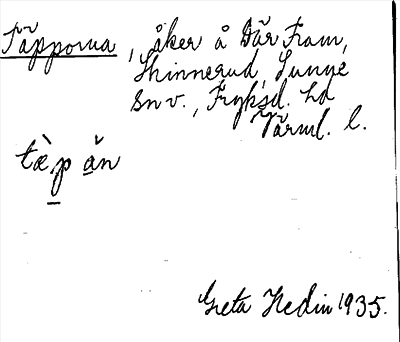 Täpporna, åker å Där Fram,
Skinnerud, Sunne
snv., Fryksd. hd
Värml. l.
tæ̀p ăn
Greta Hedin 1935.